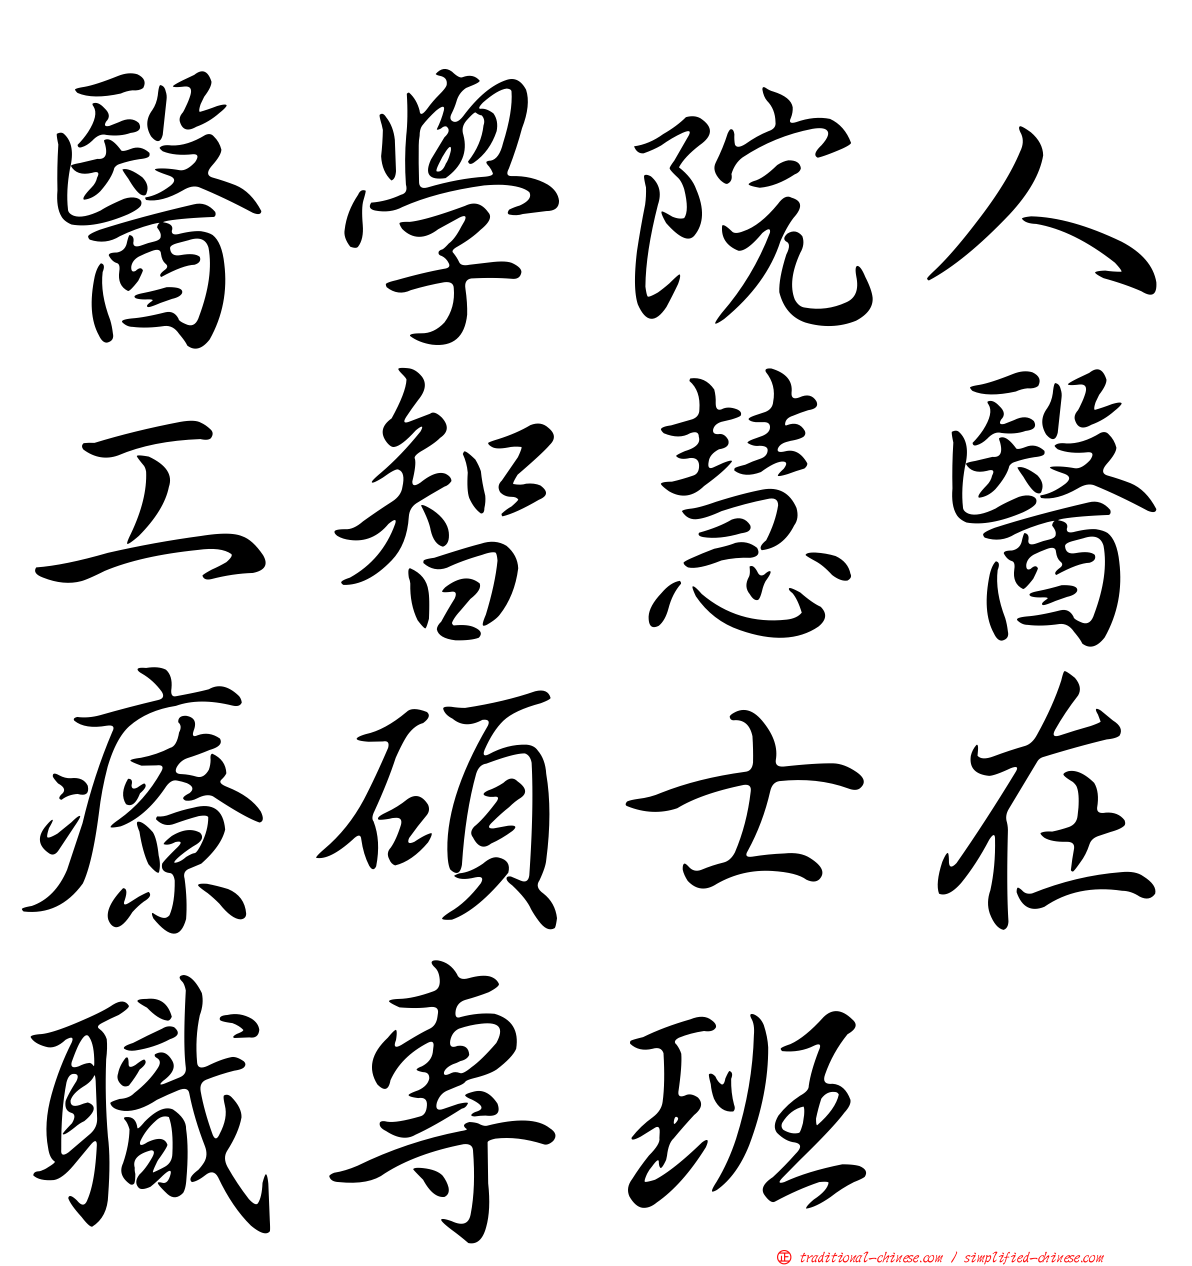 醫學院人
工智慧醫
療碩士在
職專班
正 traditional-chinese.com / simplified-chinese.com